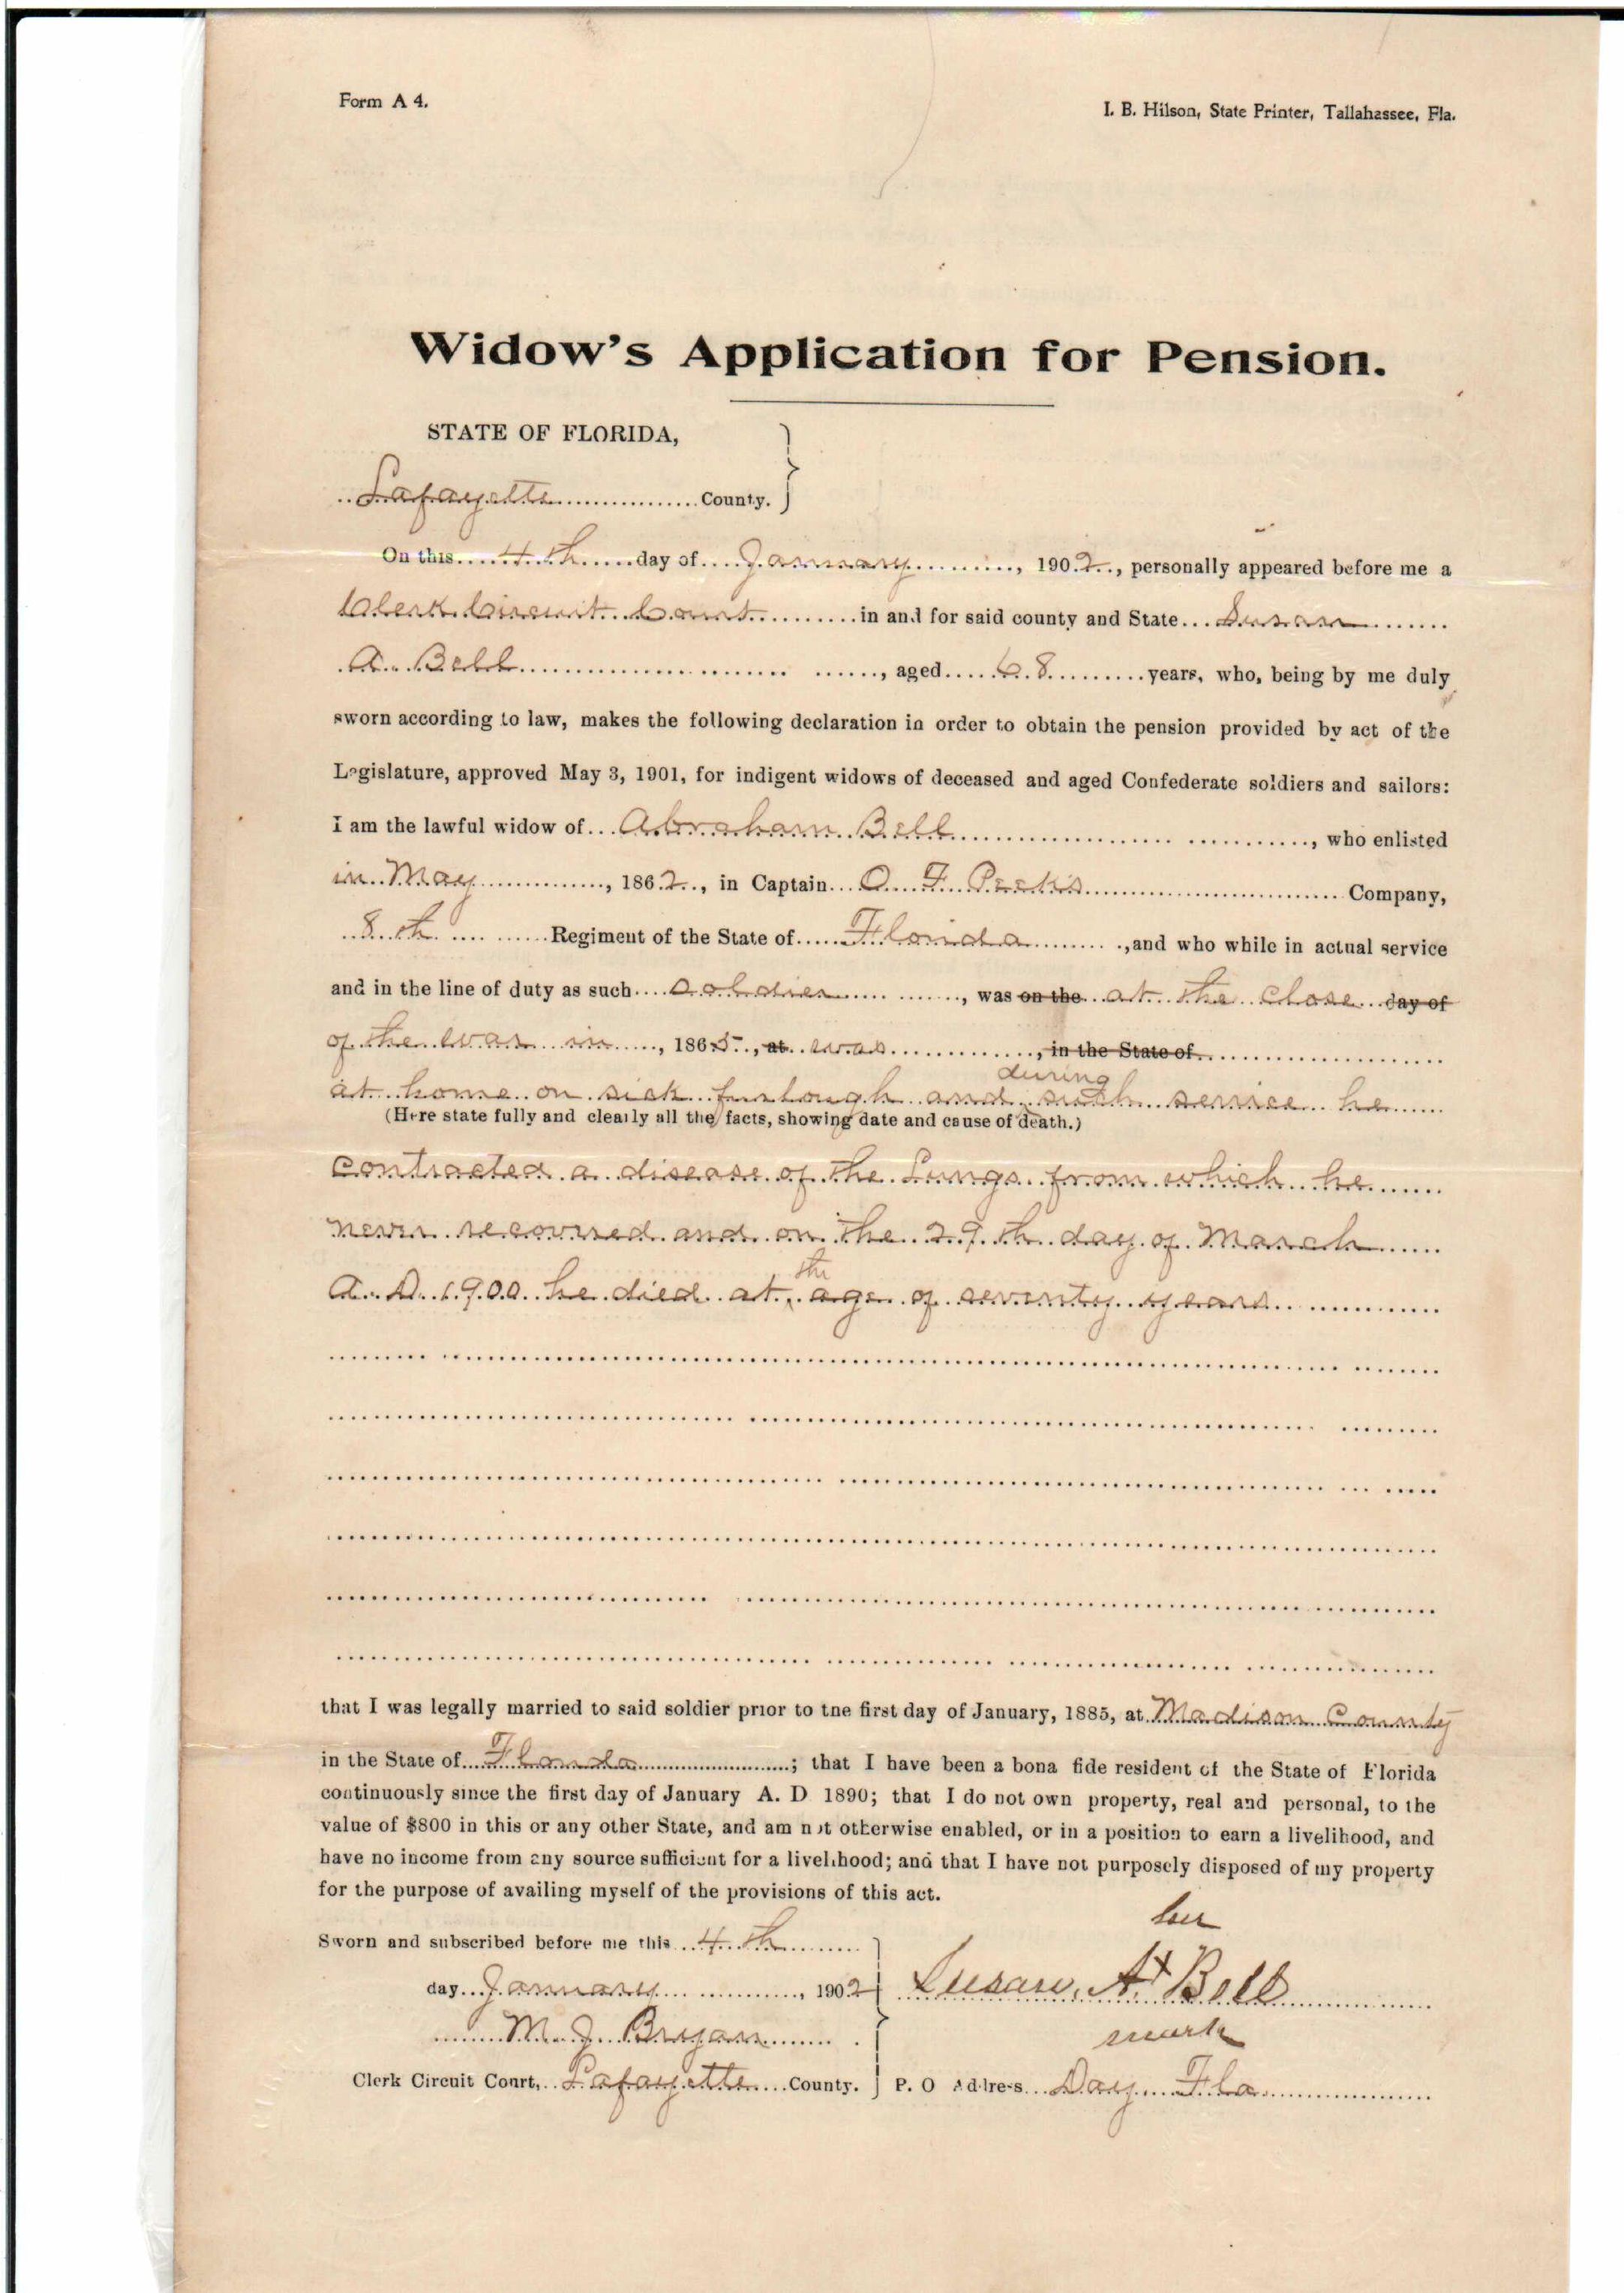 Form A 4.
I. B. Hilson, State Printer, Tallahassee, Fla.
Widow's Application for Pension.
STATE OF FLORIDA,
Lafayette County.
On this 4th day of January, 1902, personally appeared before me a
Clerk Circuit Court in and for said county and State Susan
A. Bell, aged 68 years, who, being by me duly
sworn according to law, makes the following declaration in order to obtain the pension provided by act of the
Legislature, approved May 3, 1901, for indigent widows of deceased and aged Confederate soldiers and sailors:
I am the lawful widow of Abraham Bell, who enlisted
in May, 1862, in Captain O F Peeks Company,
8th Regiment of the State of Florida, and who while in actual service
and in the line of duty as such soldier, was on the at the close day of
of the war in, 1865, at was, in the State of
at home on sick furlough and during such service he
(Here state fully and clearly all the facts, showing date and cause of death.)
contracted a disease of the Lungs from which he
never recovered and on the 29th day of March
A. D. 1900 he died at the age of seventy years
that I was legally married to said soldier prior to the first day of January, 1885, at Madison County
in the State of Florida; that I have been a bona fide resident of the State of Florida
continuously since the first day of January A. D 1890; that I do not own property, real and personal, to the
value of $800 in this or any other State, and am not otherwise enabled, or in a position to earn a livelihood, and
have no income from any source sufficient for a livelihood; and that I have not purposely disposed of my property
for the purpose of availing myself of the provisions of this act.
Sworn and subscribed before me this 4th
day January, 1902
M. J. Bryan
Clerk Circuit Court, Lafayette County.
her
Susan A x Bell
mark
P. O Address Day Fla